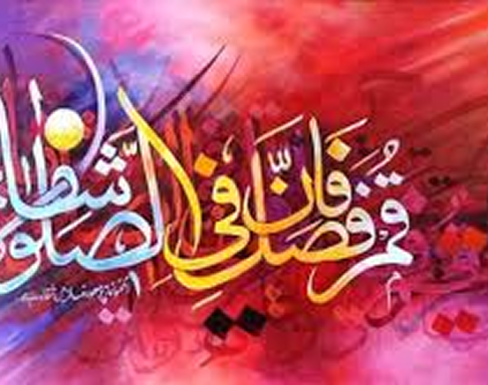 قُم فصل فانّ في الصّلوة شفاء